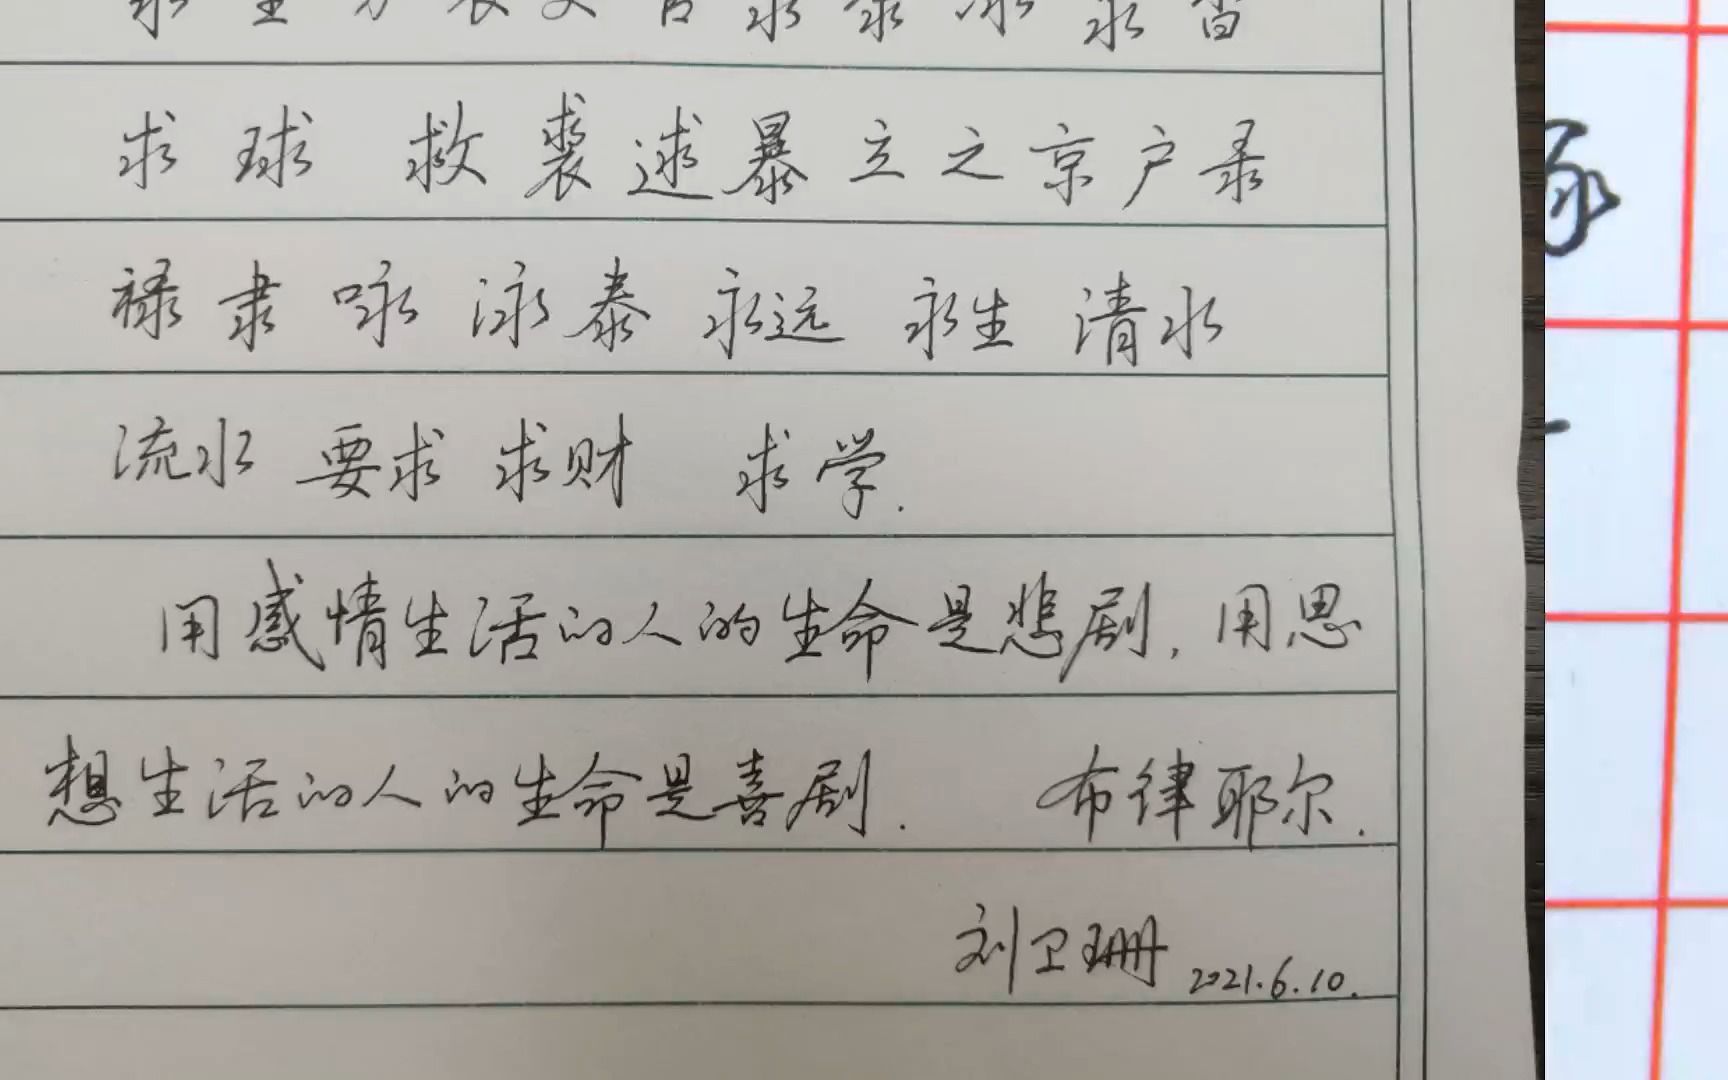 求 球 救 裘 逑 暴 立 之 京 户 录
禄 隶 咏 泳 泰 永远 永生 清水
流水 要求 求财 求学.
用感情生活的人的生命是悲剧,用思
想生活的人的生命是喜剧. 布律耶尔.
刘卫珊 2021.6.10.